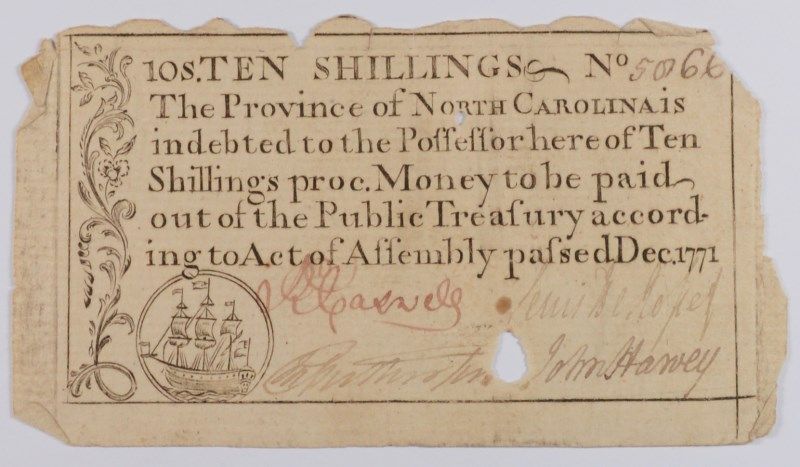 10S. TEN SHILLINGS Nº 5866
The Province of NORTH CAROLINA is
indebted to the Poſſeſſor hereof Ten
Shillings proc. Money to be paid
out of the Public Treaſury accord-
ing to Act of Aſſembly paſsed Dec. 1771
R Caswell Lewis De Roſset
John Harvey